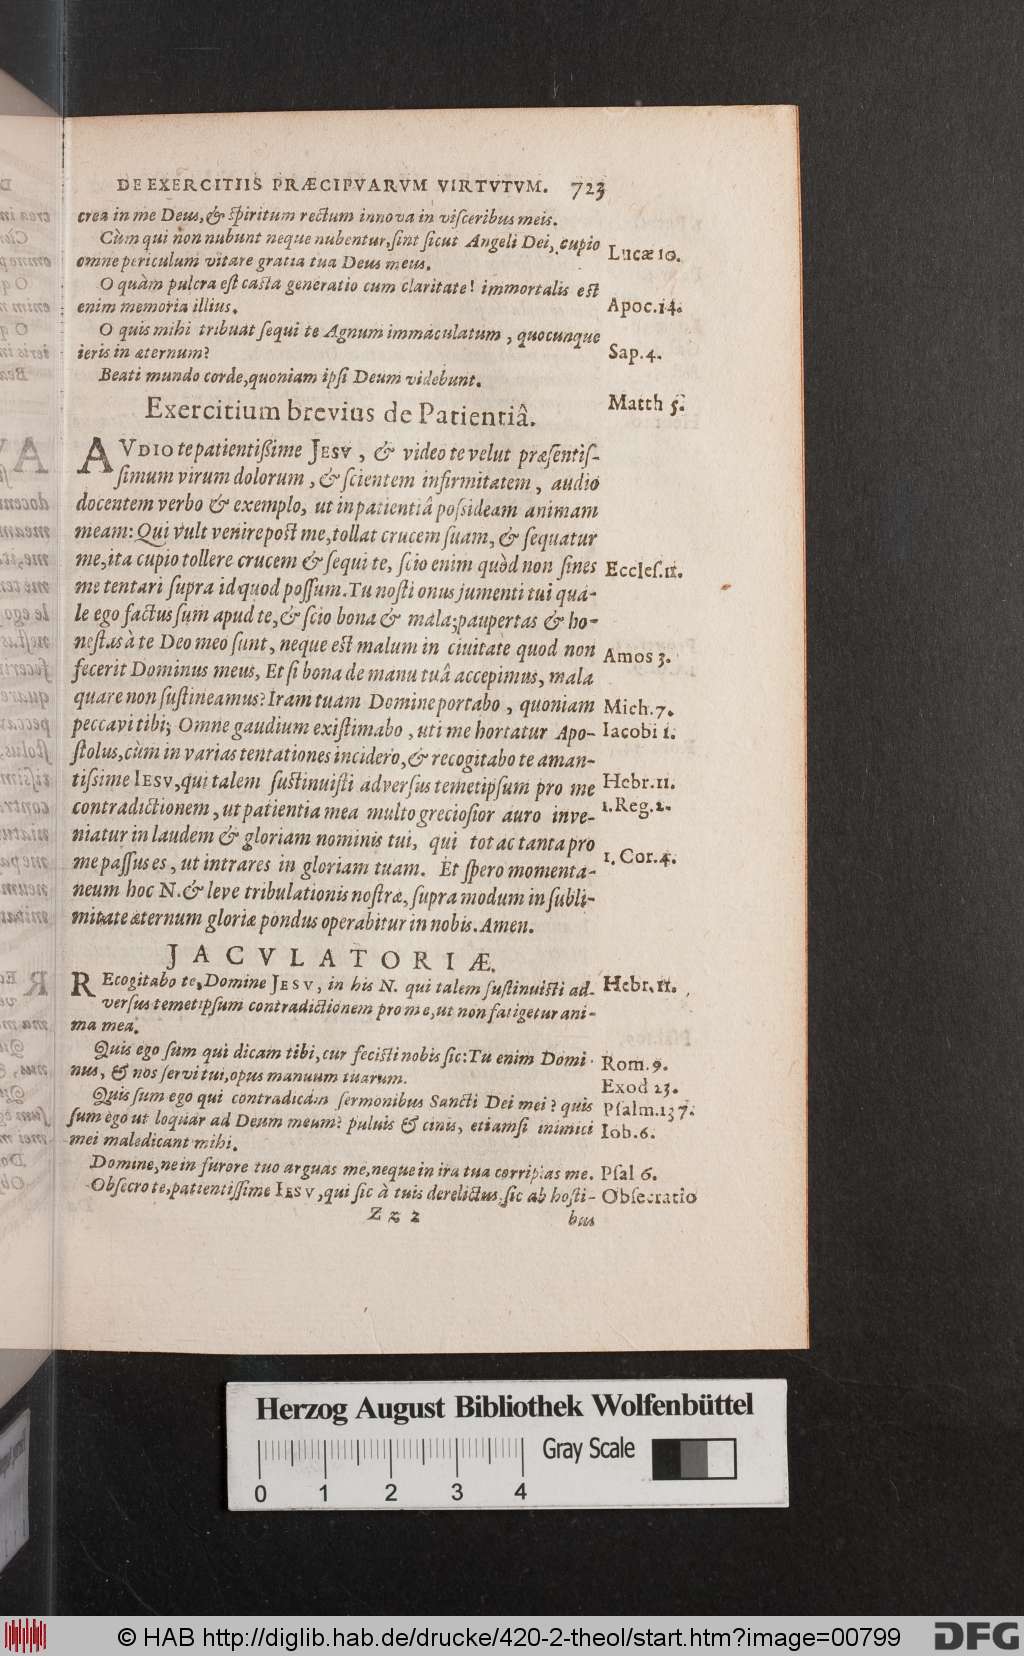 DE EXERCITIIS PRÆCIPVARVM VIRTVTVM. 723
crea in me Deus, & spiritum rectum innova in visceribus meis.
Cùm qui non nubunt neque nubentur, sint sicut Angeli Dei, cupio
omne periculum vitare gratia tua Deus meus.
Lucæ 10.
O quàm pulcra est casta generatio cum claritate! immortalis est
enim memoria illius.
Apoc. 14.
O quis mihi tribuat sequi te Agnum immaculatum, quocunque
ieris in æternum?
Sap. 4.
Beati mundo corde, quoniam ipsi Deum videbunt.
Matth 5.
Exercitium brevius de Patientiâ.
AVDIO te patientißime JESV, & video te velut præsentis-
simum virum dolorum, & scientem infirmitatem, audio
docentem verbo & exemplo, ut in patientiâ possideam animam
meam: Qui vult venire post me, tollat crucem suam, & sequatur
me, ita cupio tollere crucem & sequi te, scio enim quòd non sines
Eccles. 11.
me tentari supra id quod possum. Tu nosti onus jumenti tui qua-
le ego factus sum apud te, & scio bona & mala; paupertas & ho-
nestas à te Deo meo sunt, neque est malum in civitate quod non
Amos 3.
fecerit Dominus meus, Et si bona de manu tuâ accepimus, mala
quare non sustineamus? Iram tuam Domine portabo, quoniam
Mich. 7.
peccavi tibi; Omne gaudium existimabo, uti me hortatur Apo-
Iacobi 1.
stolus, cùm in varias tentationes incidero, & recogitabo te aman-
tissime IESV, qui talem sustinuisti adversus temetipsum pro me
Hebr. 11.
contradictionem, ut patientia mea multo greciosior auro inve-
1. Reg. 2.
niatur in laudem & gloriam nominis tui, qui tot ac tanta pro
me passus es, ut intrares in gloriam tuam. Et spero momenta-
1. Cor. 4.
neum hoc N. & leve tribulationis nostræ, supra modum in subli-
mitate æternum gloriæ pondus operabitur in nobis. Amen.
JACVLATORIÆ.
REcogitabo te, Domine JESV, in his N. qui talem sustinuisti ad-
Hebr. 11.
versus temetipsum contradictionem pro me, ut non fatigetur ani-
ma mea.
Quis ego sum qui dicam tibi, cur fecisti nobis sic: Tu enim Domi-
Rom. 9.
nus, & nos servi tui, opus manuum tuarum.
Exod 23.
Quis sum ego qui contradicam sermonibus Sancti Dei mei? quis
Psalm. 137.
sum ego ut loquar ad Deum meum? puluis & cinis, etiamsi inimici
Iob. 6.
mei maledicant mihi.
Domine, ne in furore tuo arguas me, neque in ira tua corripias me.
Psal 6.
Obsecro te, patientissime IESV, qui sic à tuis derelictus, sic ab hosti-
Obsecratio
Z z 2 bus
Herzog August Bibliothek Wolfenbüttel
Gray Scale
0 1 2 3 4
© HAB http://diglib.hab.de/drucke/420-2-theol/start.htm?image=00799
DFG